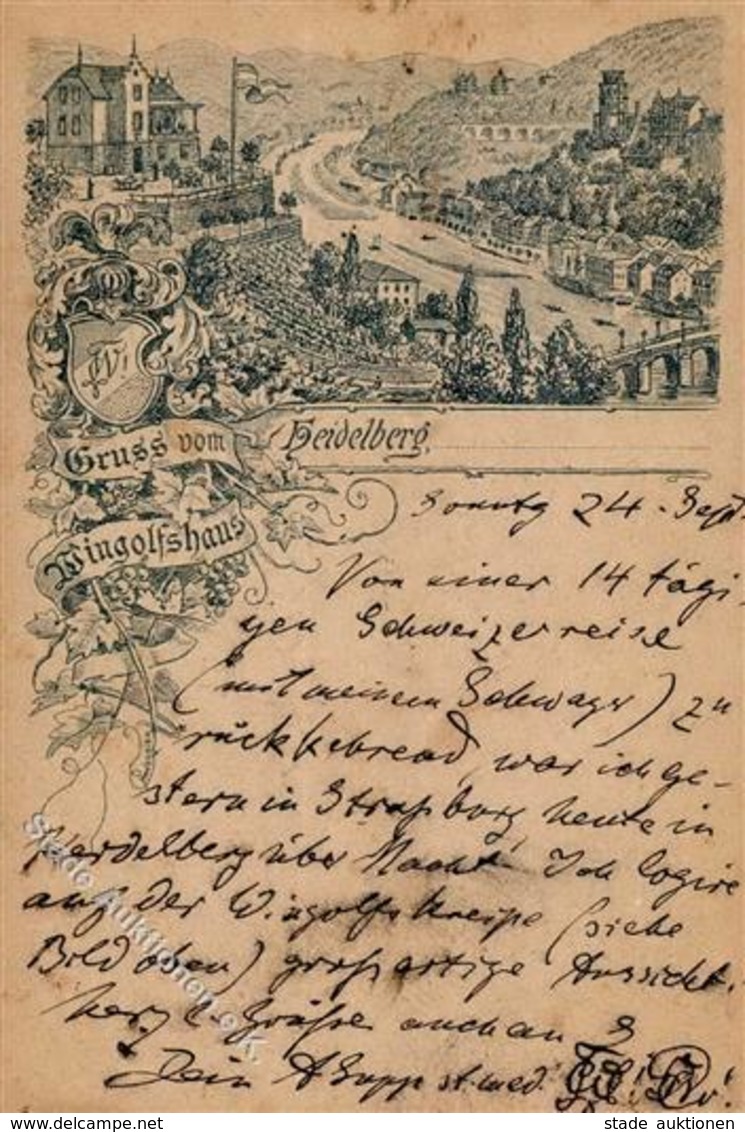 W!
Gruss vom Heidelberg,
Wingolfshaus
Sonntg 24. Sept.
Von einer 14 tägi-
gen Schweizerreise
(mit meinem Schwager) zu
rückkehrend, war ich ge-
stern in Straßburg, heute in
Heidelberg über Nacht. Ich logire
auf der Wingolfskneipe (siehe
Bild oben) großartige Aussicht.
herzl. Grüße auch an
Dein A st. med.
Stade Auktionen e.K.
stade auktionen